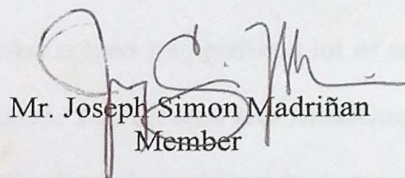 Mr. Joseph Simon Madriñan
Member